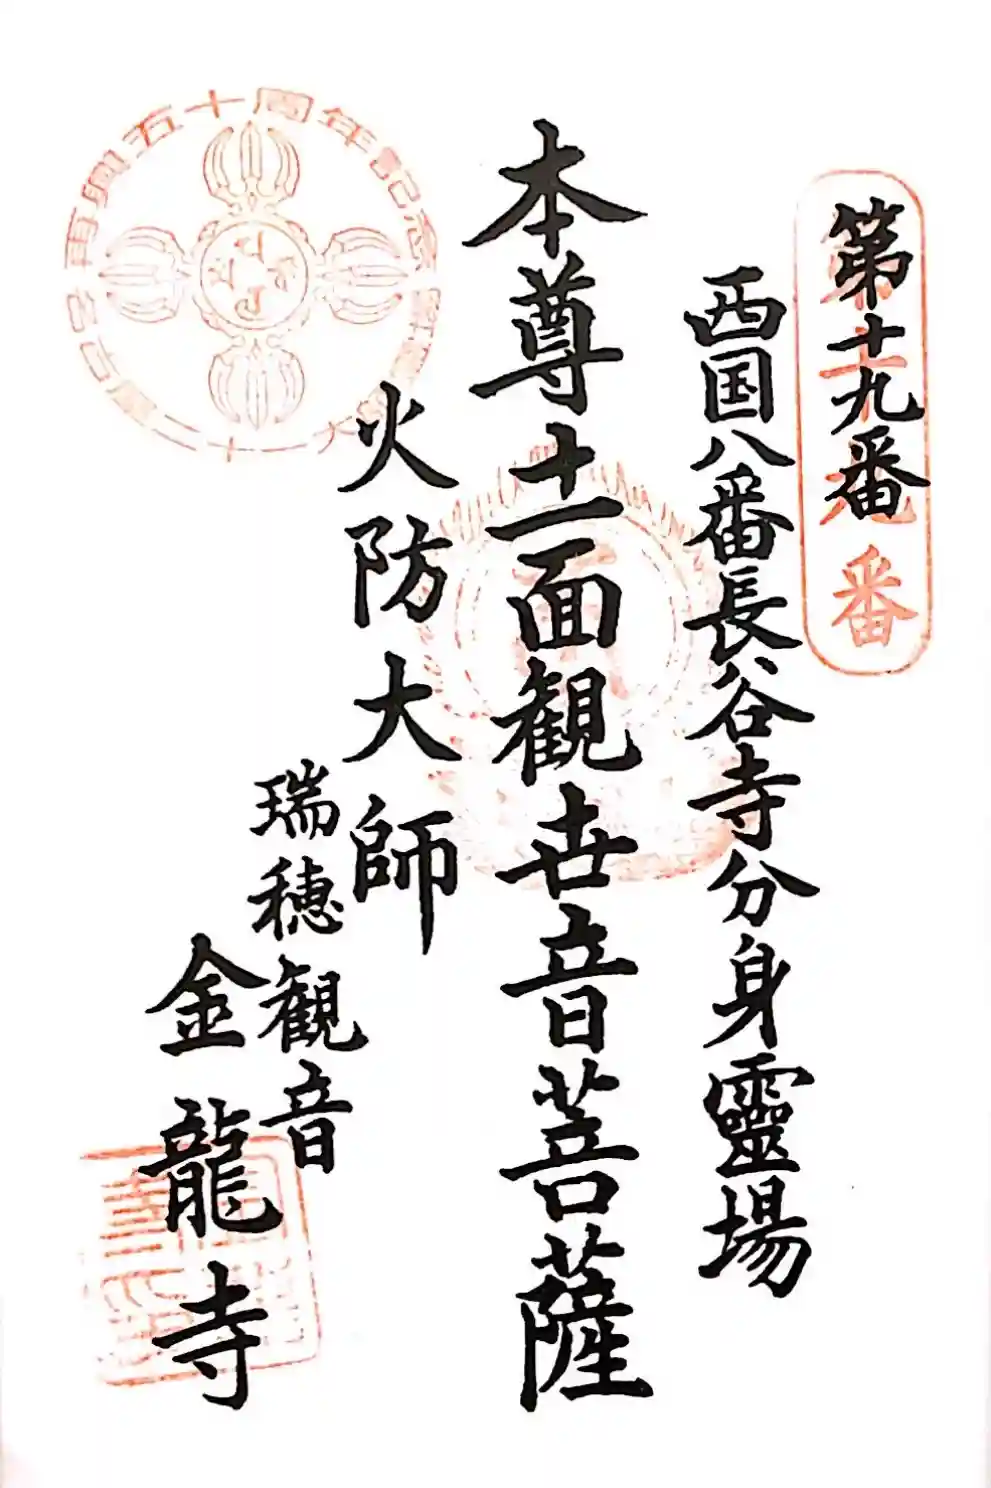 第十九番
第十九番
西国八番長谷寺分身靈場
本尊十一面観世音菩薩
火防大師
瑞穂観音
金龍寺
再興五十周年記念